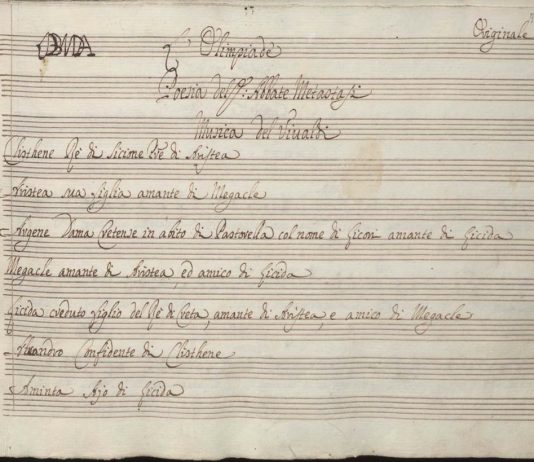 Originale
L'Olimpiade
Poesia del Sig.r Abbate Metastasi
Musica del Vivaldi
Clisthene Rè di Sicione Pre di Aristea
Aristea sua figlia amante di Megacle
Argene Dama Cretense in abito di Pastorella col nome di Licori amante di Licida
Megacle amante di Aristea, ed amico di Licida
Licida creduto figlio del Rè di Creta, amante di Aristea, e amico di Megacle
Alcandro Confidente di Clisthene
Aminta Ajo di Licida